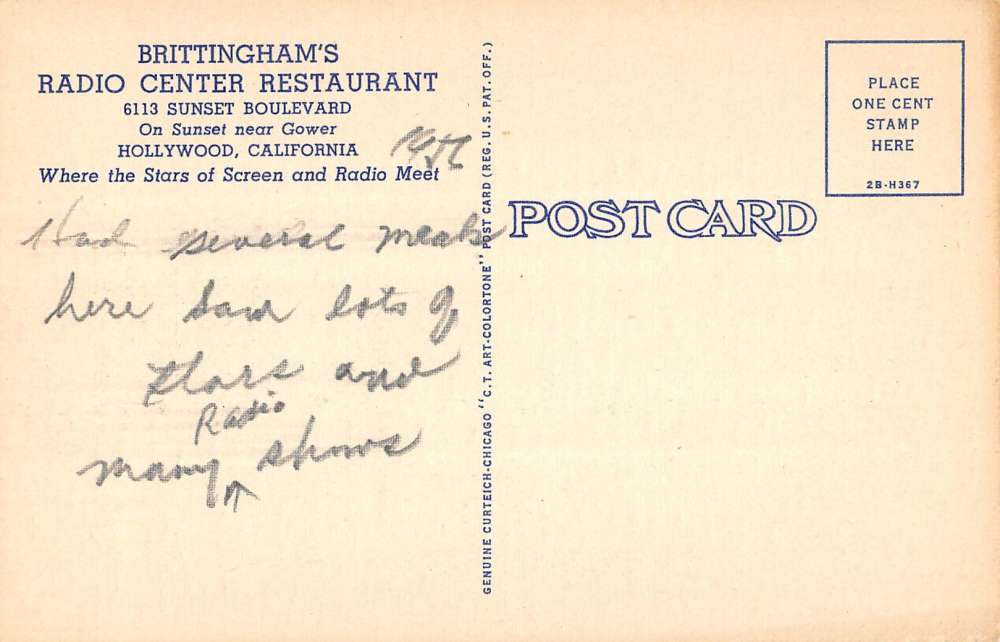 BRITTINGHAM'S
RADIO CENTER RESTAURANT
6113 SUNSET BOULEVARD
On Sunset near Gower
HOLLYWOOD, CALIFORNIA
Where the Stars of Screen and Radio Meet
Had several meals
here saw lots of
stars and
Radio
many shows
GENUINE CURTEICH-CHICAGO "C.T. ART-COLORTONE" POST CARD (REG. U.S. PAT. OFF.)
POST CARD
PLACE
ONE CENT
STAMP
HERE
2B-H367